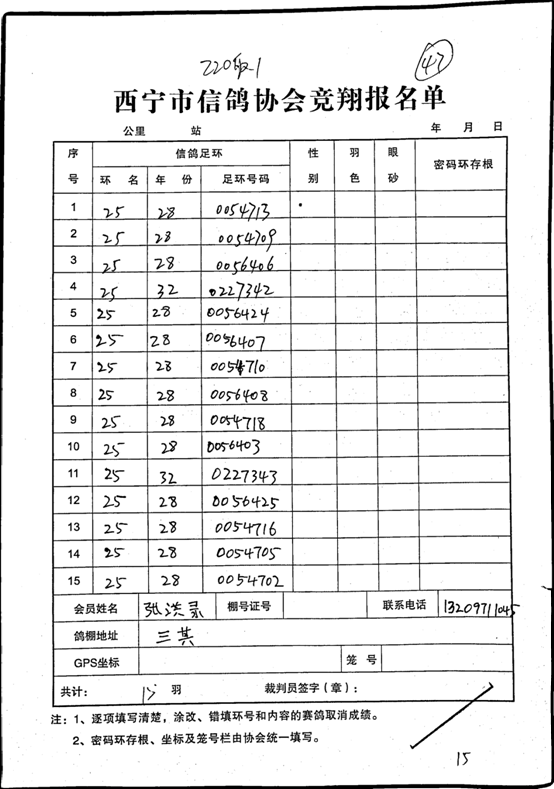 220 级-1
47
西宁市信鸽协会竞翔报名单
公里 站 年 月 日
序号 信鸽足环 性别 羽色 眼砂 密码环存根
环名 年份 足环号码
1 25 28 0054713
2 25 28 0054709
3 25 28 0056406
4 25 32 0227342
5 25 28 0056424
6 25 28 0056407
7 25 28 0054710
8 25 28 0056408
9 25 28 0054718
10 25 28 0056403
11 25 32 0227343
12 25 28 0056425
13 25 28 0054716
14 25 28 0054705
15 25 28 0054702
会员姓名 张洪录 棚号证号 联系电话 13209711045
鸽棚地址 三其
GPS坐标 笼号
共计: 15 羽 裁判员签字(章):
注:1、逐项填写清楚,涂改、错填环号和内容的赛鸽取消成绩。
2、密码环存根、坐标及笼号栏由协会统一填写。
15